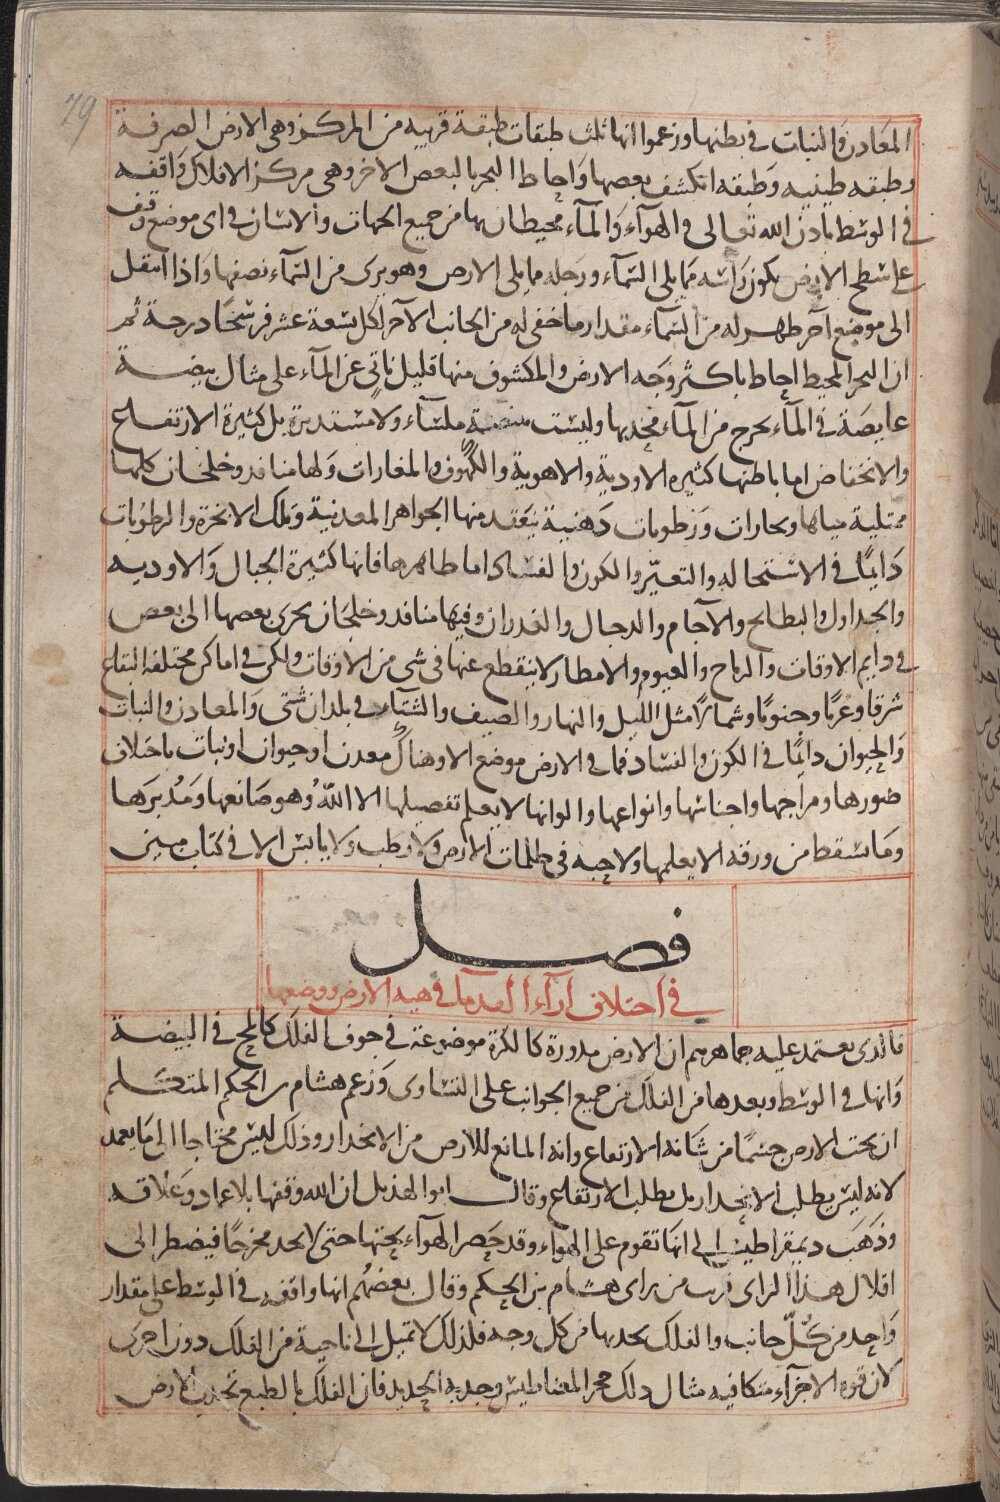 79
المعادن والنبات في بطنها وزعموا انها ثلث طبقات طبقة قريبه من المركز وهى الارض الصرفة
وطبقه طينيه وطبقه انكشف بعضها واحاط البحر بالبعض الاخر وهى مركز الافلاك واقفه
في الوسط باذن الله تعالى والهوآء والمآء محيطان بها من جميع الجهات والانسان في اى موضع وقف
على سطح الارض يكون راسه مما يلى السّمآء ورجله مما يلى الارض وهو يرى من السّمآء نصفها واذا انتقل
الى موضع آخر ظهر له من السّمآء مقدار ما خفى له من الجانب الآخر لكل تسعة عشر فرسخًا درجة ثم
ان البحر المحيط احاط باكثر وجه الارض والمكشوف منها قليل ناتي عن المآء على مثال بيضة
غايصة في المآء يخرج من المآء محدبها وليست منصمتة ملسآء ولا مستديرة بل كثيرة الارتفاع
والانخفاض اما باطنها كثيره الاودية والاهوية والكهوف والمغارات ولها منافذ وخلجان كلها
ممتلية مياها وبخارات ورطوبات دهنية ينعقد منها الجواهر المعدنية وتلك الابخرة والرطوبات
دايمًا في الاستحاله والتغيّر والكون والفساد اما ظاهرها فانها كثيرة الجبال والاوديه
والجداول والبطايح والآجام والدجال والغدران وفيها منافذ وخلجان يجرى بعضها الى بعض
في دايم الاوقات والرياح والغيوم والامطار لا ينقطع عنها فى شى من الاوقات ولكن فى اماكن مختلفه البقاع
شرقا وغربًا وجنوبًا وشمالاً مثل الليل والنهار والصيف والشتآء في بلدان شتى والمعادن والنبات
والحيوان دايمًا في الكون والفساد فما في الارض موضع الا وهناك معدن او حيوان او نبات باختلاف
صورها ومزاجها واجناسها وانواعها والوانها لا يعلم تفصيلها الا اللّه وهو صانعها ومدبرها
وما تسقط من ورقه الا يعلمها ولا حبه في ظلمات الارض ولا رطب ولا يابس الا في كتاب مبين
فصل
في اختلاف ارآء القدمآ في هيه الارض ووضعها
فالذى يعتمد عليه جماهرهم ان الارض مدورة كالكرة موضوعة في جوف الفلك كالمح في البيضة
وانها في الوسط وبعدها من الفلك من جميع الجوانب على التساوى وزعم هشام بن الحكم المتكلم
ان تحت الارض جسمًا من شانه الارتفاع وانه المانع للارض من الانحدار وذلك ليس محتاجا الى ما يعمد
لانه ليس يطلب الانحدار بل يطلب الارتفاع وقال ابو الهذيل ان الله وقفها بلا عماد وعلاقه
وذهب ديمقراطيس الى انها تقوم على الهواء وقد حصر الهوآء تحتها حتى لا يجد مخرجًا فيضطر الى
اقلال هذا الراى قريب من راى هشام بن الحكم وقال بعضهم انها واقفه في الوسط على مقدار
واحد من كلّ جانب والفلك يجذبها من كل وجه فلذلك لا تميل الى ناحية من الفلك دون اخرى
لان قوه الاجزآء متكافيه مثال ذلك حجر المغناطيس وجذبه الحديد فان الفلك بالطبع تجذب الارض